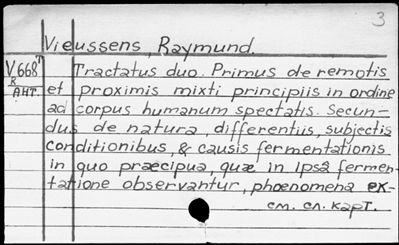 3
Vieussens, Raymund.
V668т Tractatus duo. Primus de remotis
R et proximis mixti principiis in ordine
АНТ. ad corpus humanum spectatis. Secun-
dus de natura, differentiis, subjectis
conditionibus, & causis fermentationis
in quo praecipua, quæ in ipsâ fermen-
tatione observantur, phœnomena ex-
см. сл. карт.